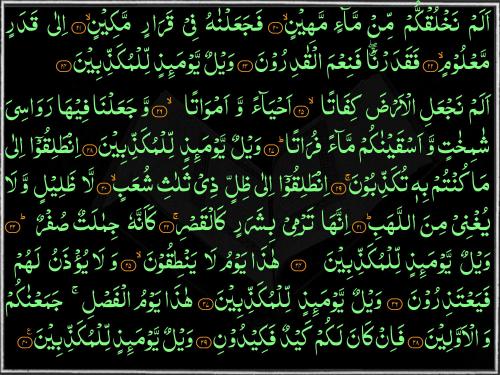 اَلَمْ نَخْلُقْكُّمْ مِّنْ مَّآءٍ مَّهِيْنٍۙ ۲۰ فَجَعَلْنٰهُ فِیْ قَرَارٍ مَّكِيْنٍۙ ۲۱ اِلٰى قَدَرٍ
مَّعْلُوْمٍۙ ۲۲ فَقَدَرْنَا ۖ فَنِعْمَ الْقٰدِرُوْنَ ۲۳ وَيْلٌ يَّوْمَئِذٍ لِّلْمُكَذِّبِيْنَ ۲۴
اَلَمْ نَجْعَلِ الْاَرْضَ كِفَاتًاۙ ۲۵ اَحْيَآءً وَّ اَمْوَاتًاۙ ۲۶ وَّ جَعَلْنَا فِيْهَا رَوَاسِیَ
شٰمِخٰتٍ وَّ اَسْقَيْنٰكُمْ مَّآءً فُرَاتًاؕ ۲۷ وَيْلٌ يَّوْمَئِذٍ لِّلْمُكَذِّبِيْنَ ۲۸ اِنْطَلِقُوْۤا اِلٰى
مَا كُنْتُمْ بِهٖ تُكَذِّبُوْنَۚ ۲۹ اِنْطَلِقُوْۤا اِلٰى ظِلٍّ ذِیْ ثَلٰثِ شُعَبٍۙ ۳۰ لَّا ظَلِيْلٍ وَّ لَا
يُغْنِیْ مِنَ اللَّهَبِؕ ۳۱ اِنَّهَا تَرْمِیْ بِشَرَرٍ كَالْقَصْرِۚ ۳۲ كَاَنَّهٗ جِمٰلَتٌ صُفْرٌؕ ۳۳
وَيْلٌ يَّوْمَئِذٍ لِّلْمُكَذِّبِيْنَ ۳۴ هٰذَا يَوْمُ لَا يَنْطِقُوْنَۙ ۳۵ وَ لَا يُؤْذَنُ لَهُمْ
فَيَعْتَذِرُوْنَ ۳۶ وَيْلٌ يَّوْمَئِذٍ لِّلْمُكَذِّبِيْنَ ۳۷ هٰذَا يَوْمُ الْفَصْلِۚ جَمَعْنٰكُمْ
وَ الْاَوَّلِيْنَ ۳۸ فَاِنْ كَانَ لَكُمْ كَيْدٌ فَكِيْدُوْنِ ۳۹ وَيْلٌ يَّوْمَئِذٍ لِّلْمُكَذِّبِيْنَ ۴۰